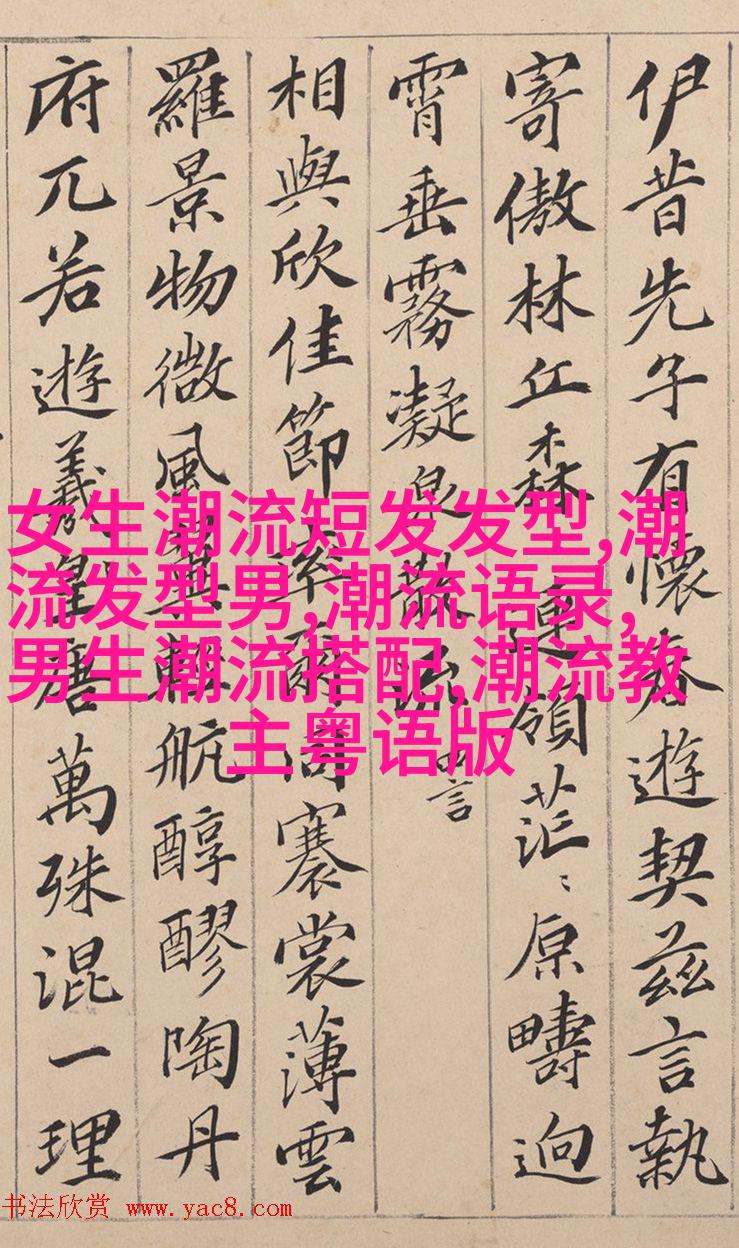 伊昔先子有懷春遊契兹言執
寄傲林丘森連領茫〻原疇迥
霄垂霧凝泉散流 四言
相與欣佳節率爾同褰裳薄雲
羅景物微風翼輕航醇醪陶丹
府兀若遊羲皇唐萬殊混一理
女生潮流短发发型,潮
流发型男,潮流语录,
男生潮流搭配,潮流教
主粤语版
书法欣赏 www.yac8.com